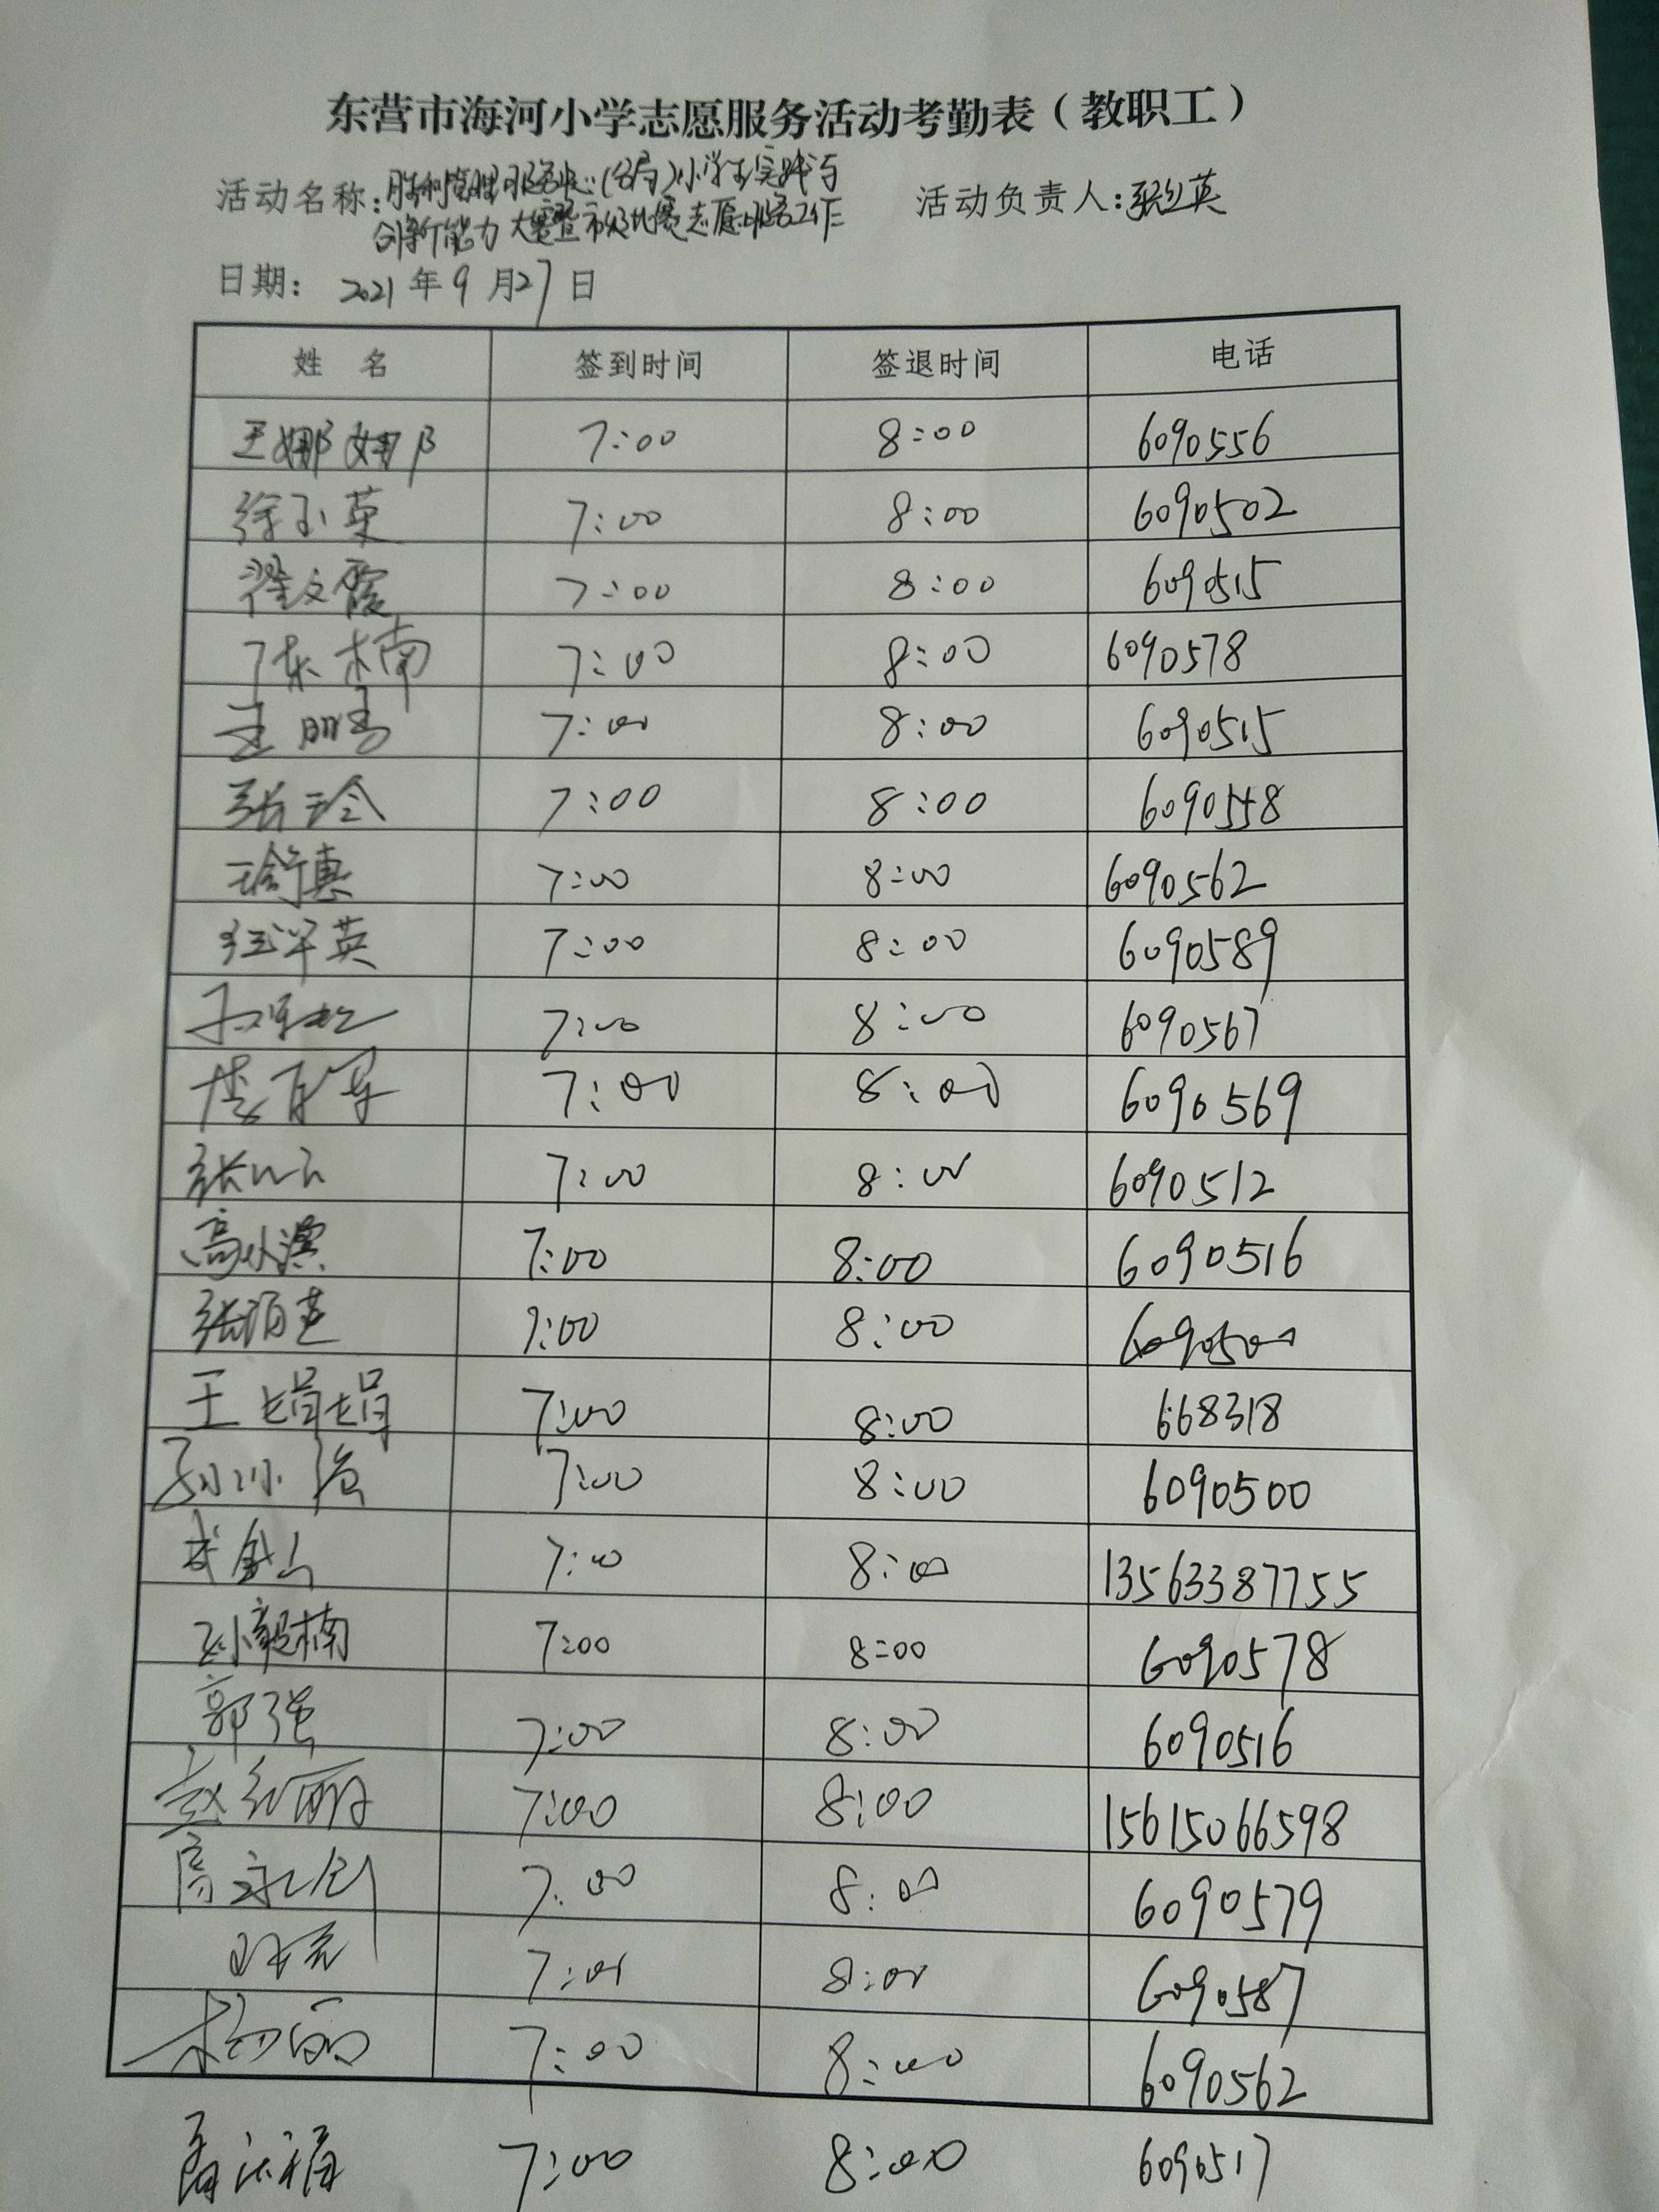 东营市海河小学志愿服务活动考勤表（教职工）
活动名称：胜利 (分局)小学生实践与 活动负责人：张 英
创新能力大赛暨市级比赛志愿服务工作
日期： 2021 年 9 月 27 日
姓 名 签到时间 签退时间 电话
王娜娜 7:00 8:00 6090556
徐玉英 7:00 8:00 6090502
翟文霞 7:00 8:00 6090515
陈楠 7:00 8:00 6090578
王鹏 7:00 8:00 6090515
张玲 7:00 8:00 6090558
7:00 8:00 6090562
7:00 8:00 6090589
7:00 8:00 6090567
7:00 8:00 6090569
7:00 8:00 6090512
7:00 8:00 6090516
7:00 8:00 6090500
王娟娟 7:00 8:00 668318
7:00 8:00 6090500
7:00 8:00 13563387755
孙毅楠 7:00 8:00 6090578
郭强 7:00 8:00 6090516
赵红丽 7:00 8:00 15615066598
高永刚 7:00 8:00 6090579
7:00 8:00 6090587
杨丽 7:00 8:00 6090562
7:00 8:00 6090517